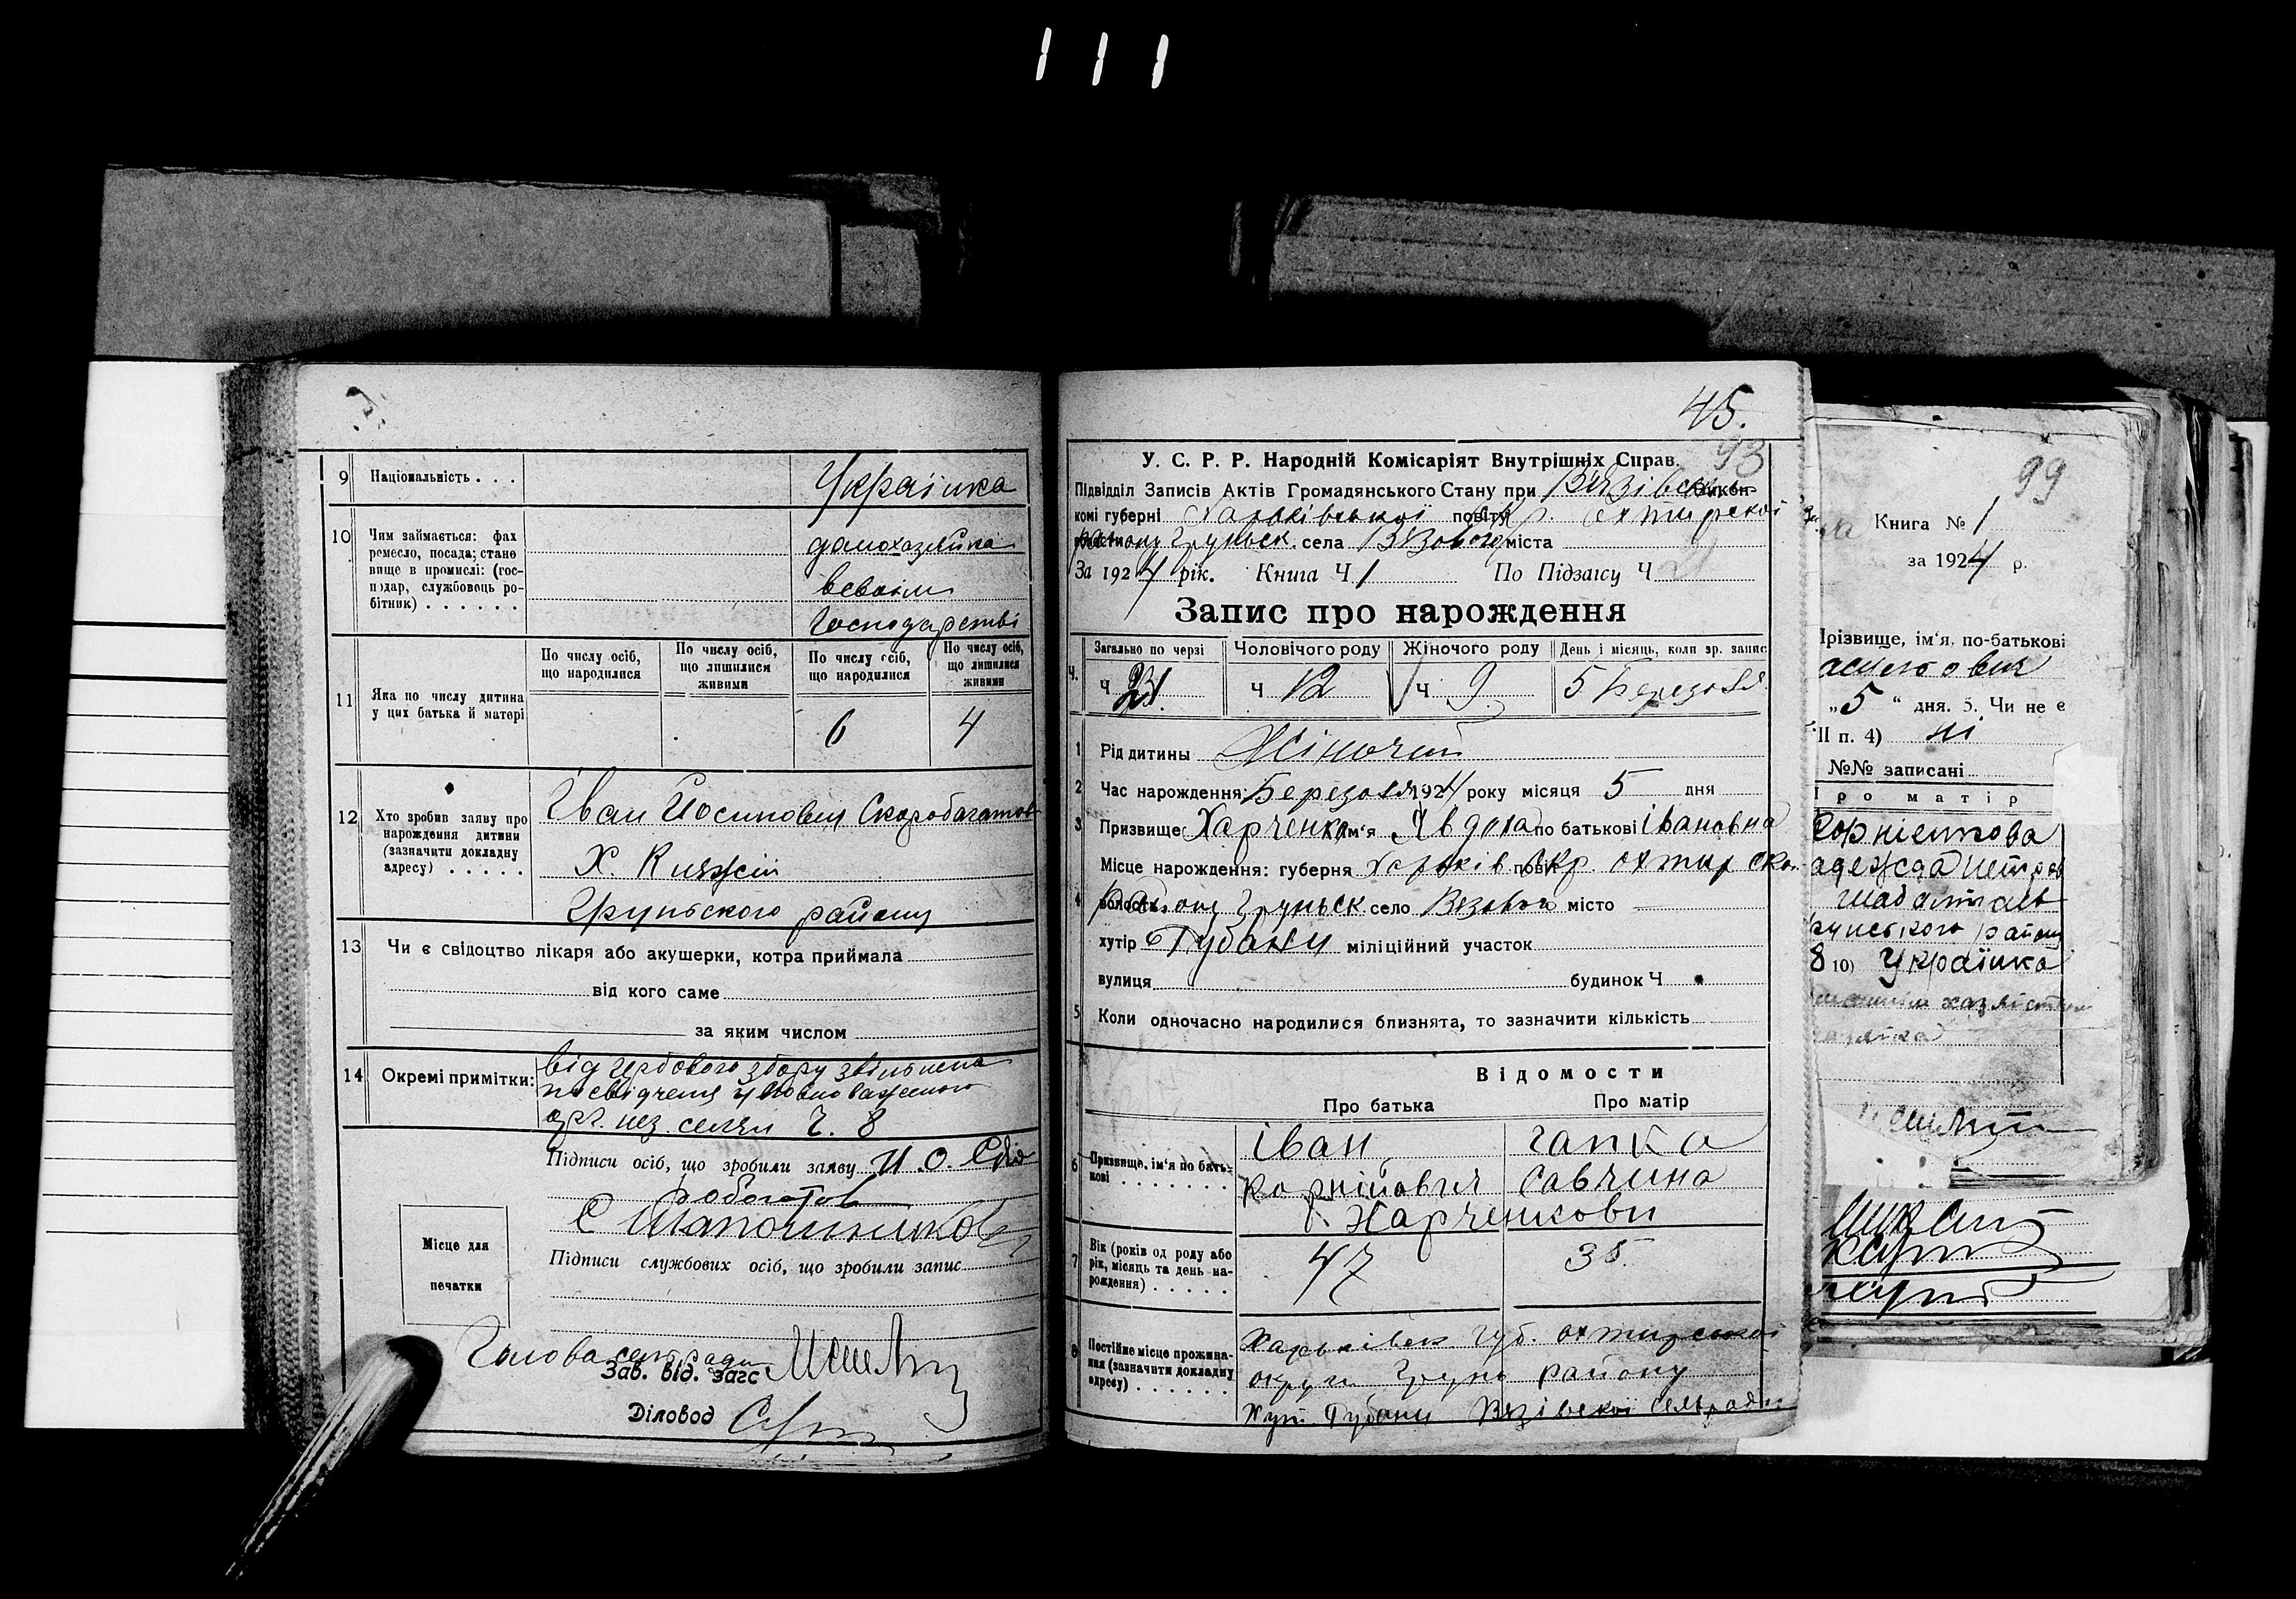 111
9 Національність . . .
Українка
10 Чим займається: фах
ремесло, посада; стано
вище в промислі: (гос-
подар, службовець ро-
бітник) . . . . . .
домохазяйка
в своїм
господарстві
11 Яка по числу дитина
у цих батька й матері
По числу осіб,
що народилися
По числу осіб,
що лишилися
живими
По числу осіб,
що народилися
По числу осіб,
що лишилися
живими
6 4
12 Хто зробив заяву про
нарождення дитини
(зазначити докладну
адресу) . . . . .
Іван Иосипович Скоробагатов
Х.
Груньского району
13 Чи є свідоцтво лікаря або акушерки, котра приймала
від кого саме
за яким числом
14 Окремі примітки:
від гербового збору звільнена
посвідченя уповноваженого
орг. нез. селян Ч. 8
Підписи осіб, що зробили заяву И. О. Ско
робогатов
С Шапошников
Місце для
печатки
Підписи службових осіб, що зробили запис
Голова сельради
Зав. від. загс
Діловод
45.
93
У. С. Р. Р. Народній Комісаріят Внутрішніх Справ.
Підвідділ Записів Актів Громадянського Стану при Вязівськ. Викон-
комі губерні Харьківської повіту окр. охтирської
волости району Груньск. села Вязового міста
За 1924 рік. Книга Ч 1 По Підзагсу Ч 21
Запис про нарождення
Ч.
Загально по черзі Чоловічого роду Жіночого роду День і місяць, коли зр. запис
Ч 21. Ч 12 Ч 9. 5 Березоля
1 Рід дитини Жіночий
2 Час нарождення: Березоля 1924 року місяця 5 дня
3 Призвище Харченко Ім'я Явдоха по батькові Івановна
4 Місце нарождення: губерня Харьків. повіт окр. охтирско.
волость району Груньск село Вязовое місто
хутір Губани міліційний участок
вулиця будинок Ч
5 Коли одночасно народилися близнята, то зазначити кількість
Відомости
Про батька Про матір
6 Призвище, ім'я по бать-
кові . . . . . . .
Іван Гапка
корнійович Савчина
Харченкови
7 Вік (років од роду або
рік, місяць та день на-
рождення) . . . . .
47 35.
8 Постійне місце прожива-
ння (зазначити докладну
адресу) . . . . . .
Харьківск губ. охтирської
округи Грунь району
Хут. Губани Вязівскої сельради
99
Книга № 1
за 1924 р.
Прізвище, ім'я, по-батькові
„5“ дня. 5. Чи не є
II п. 4) ні
№№ записані
Про матір
Корнієнкова
району
8 10) Українка